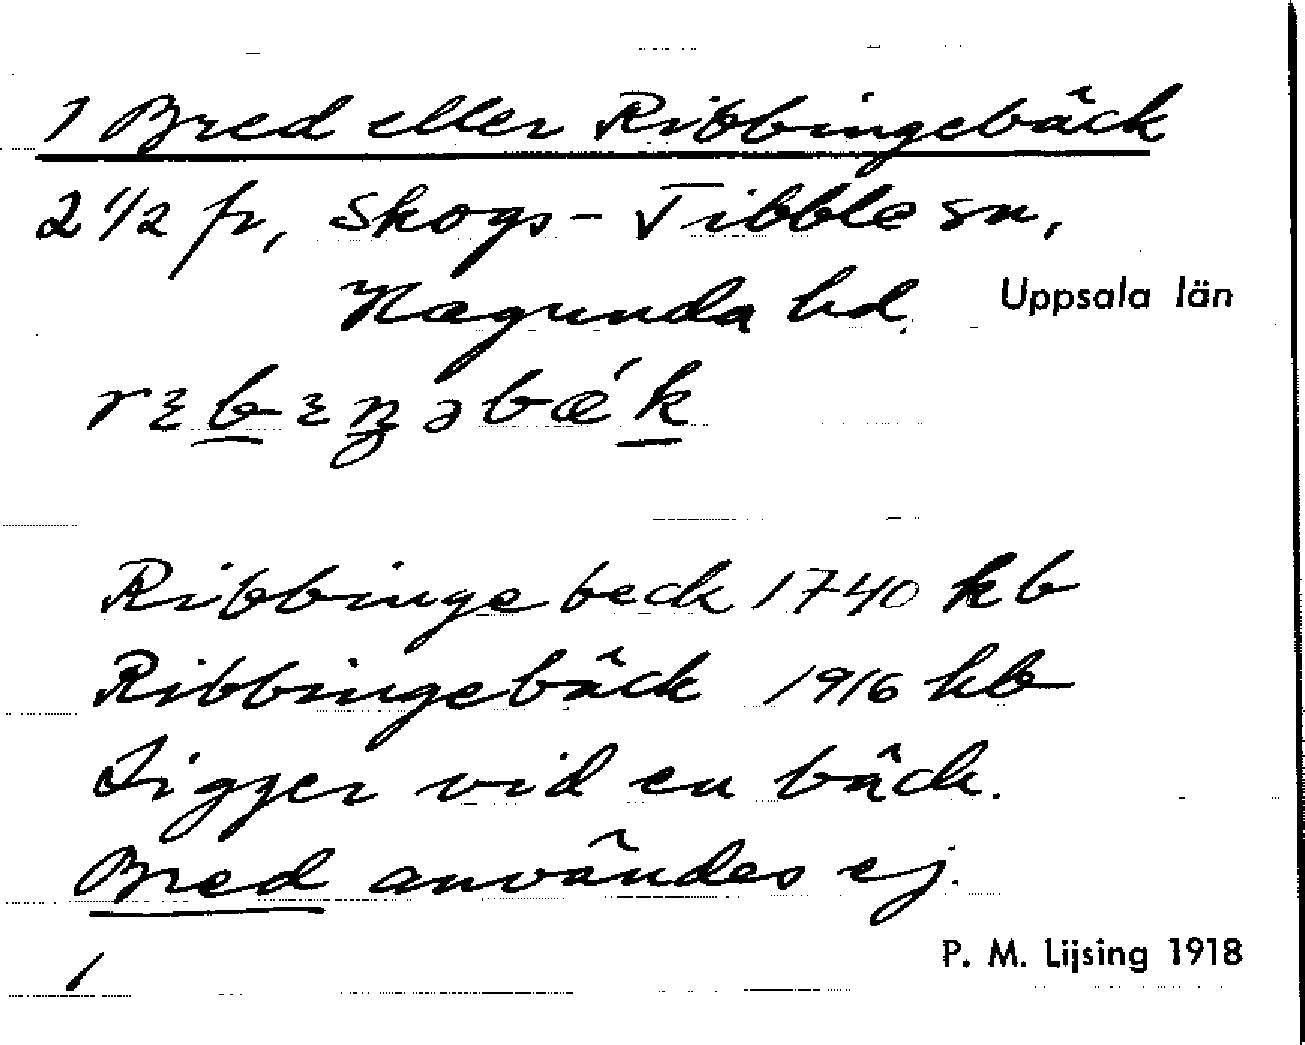 1 Bred eller Ribbingebäck
2 1/2 fr, Skogs-Tibble sn,
Hagunda hd. Uppsala län
Ribbingebeck 1740 kb
Ribbingebäck 1916 hb
Ligger vid en bäck.
Bred användes ej.
1
P. M. Lijsing 1918